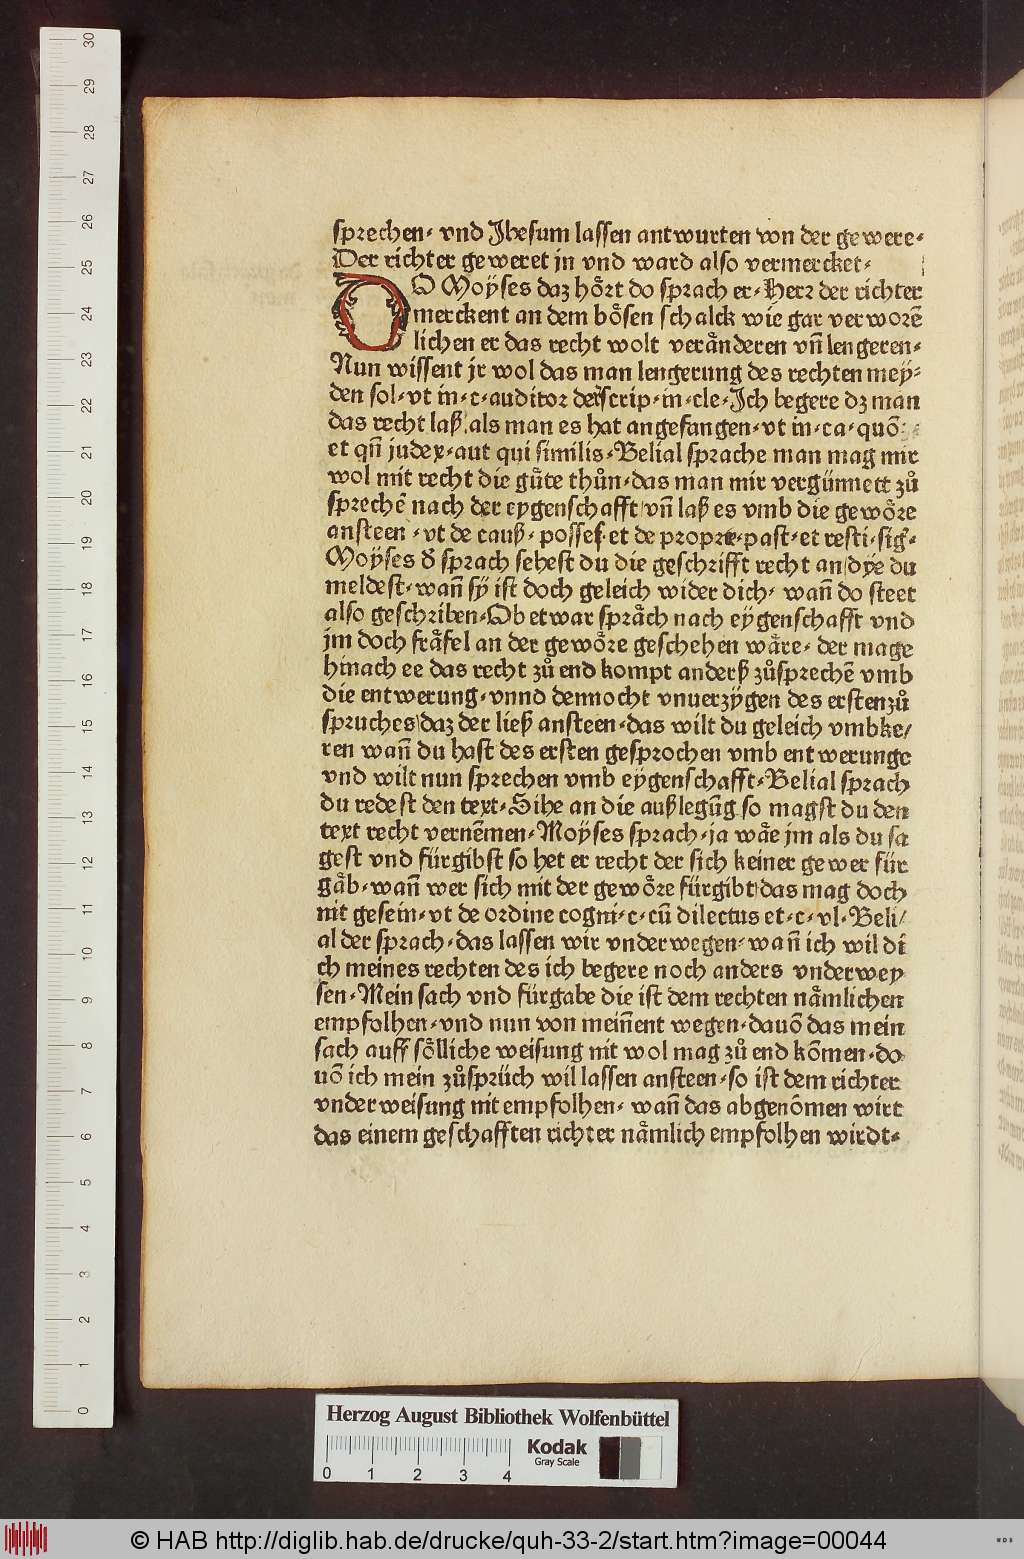 sprechen· vnd Jhesum lassen antwurten von der gewere·
Der richter geweret jn vnd ward also vermercket·
DO Moÿses daz hoͤrt do sprach er· Herr der richter
merckent an dem boͤsen schalck wie gar verworē
lichen er das recht wolt veraͤnderen vn̄ lengeren·
Nun wissent jr wol das man lengerung des rechten mey⸗
den sol· vt in· c· auditor derscrip· in· cle· Jch begere dz man
das recht laß als man es hat angefangen· vt in· ca· quō
et qn̄ judex· aut qui similis· Belial sprache man mag mir
wol mit recht die guͤte thůn· das man mir vergünnett zů
sprechē nach der eygenschafft vn̄ laß es vmb die gewoͤre
ansteen· vt de cauß· possef· et de propre· past· et resti· sig·
Moÿses d̄ sprach sehest du die geschrifft recht an dÿe du
meldest· wan̄ sÿ ist doch geleich wider dich· wan̄ do steet
also geschriben· Ob etwar spraͤch nach eÿgenschafft vnd
jm doch fraͤfel an der gewoͤre geschehen waͤre· der mage
hinach ee das recht zů end kompt anderß zůsprechē vmb
die entwerung· vnnd dennocht vnuerzÿgen des ersten zů
spruches daz der ließ ansteen· das wilt du geleich vmbke/
ren wan̄ du hast des ersten gesprochen vmb entwerunge
vnd wilt nun sprechen vmb eÿgenschafft· Belial sprach
du redest den text· Sihe an die außlegūg so magst du den
text recht vernēmen· Moÿses sprach· ja waͤe jm als du sa
gest vnd fürgibst so het er recht der sich keiner gewer für
gaͤb· wan̄ wer sich mit der gewoͤre fürgibt das mag doch
nit gesein· vt de ordine cogni· c· cū dilectus et· c· vl· Beli/
al der sprach· das lassen wir vnderwegen· wan̄ ich wil di
ch meines rechten des ich begere noch anders vnderwey
sen· Mein sach vnd fürgabe die ist dem rechten naͤmlichen
empfolhen· vnd nun von mein̄ent wegen· dauō das mein
sach auff soͤlliche weisung nit wol mag zů end kōmen· do
uō ich mein zůsprüch wil lassen ansteen· so ist dem richter
vnderweisung nit empfolhen· wan̄ das abgenōmen wirt
das einem geschafften richter naͤmlich empfolhen wirdt·
30
29
28
27
26
25
24
23
22
21
20
19
18
17
16
15
14
13
12
11
10
9
8
7
6
5
4
3
2
1
0
Herzog August Bibliothek Wolfenbüttel
Kodak
Gray Scale
0 1 2 3 4
© HAB http://diglib.hab.de/drucke/quh-33-2/start.htm?image=00044